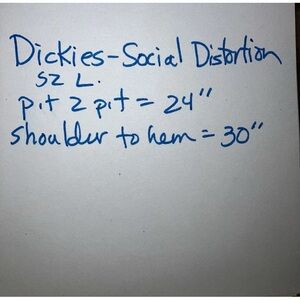 Dickies-Social Distortion
SZ L.
pit 2 pit = 24"
shoulder to hem = 30"